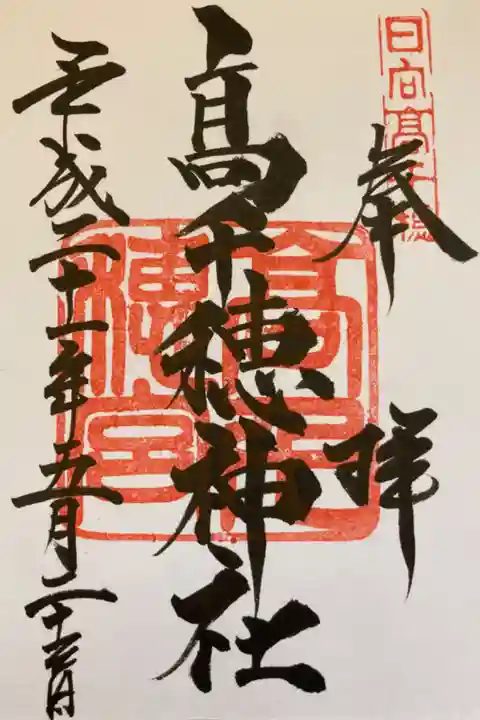 日向髙千穂
奉拝
髙千穂神社
髙千穂宮
平成二十一年五月二十